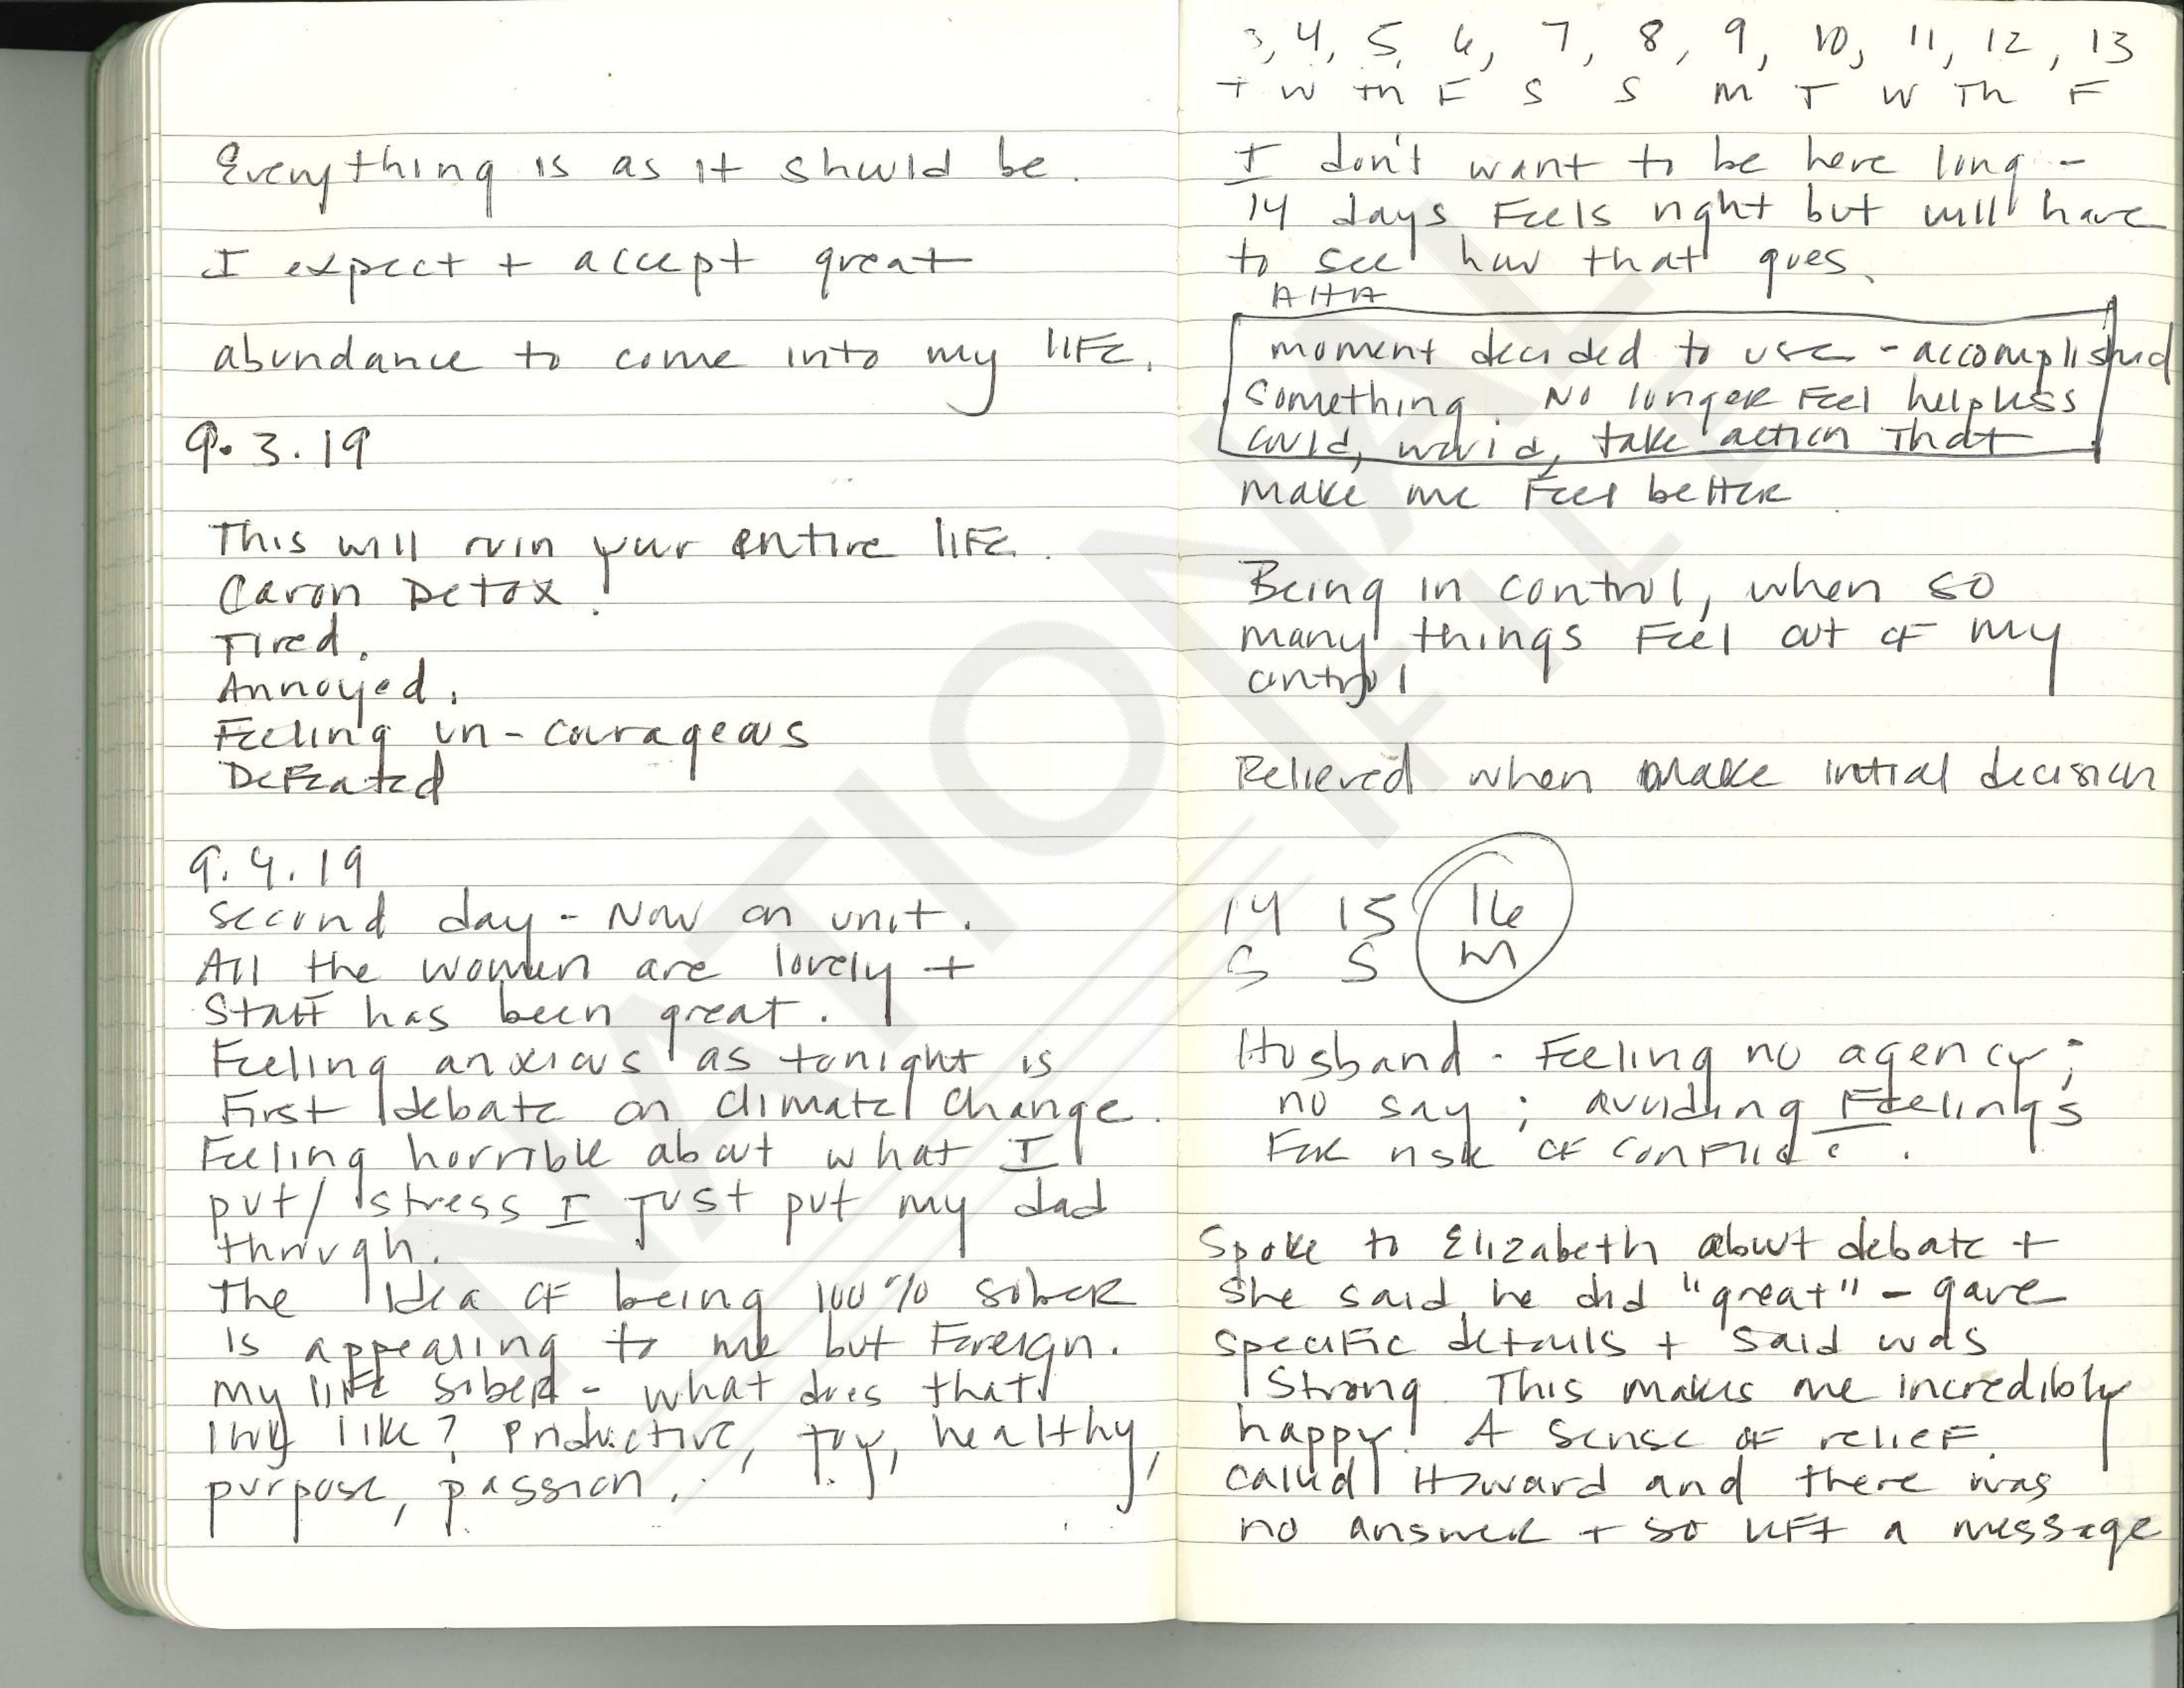 Everything is as it should be.
I expect + accept great
abundance to come into my life.
9.3.19
This will ruin your entire life.
Caron Detox!
Tired.
Annoyed.
Feeling un-courageous
Defeated
9.4.19
second day - Now on unit.
All the women are lovely +
Staff has been great.
Feeling anxious as tonight is
First debate on climate change.
Feeling horrible about what I
put/ stress I just put my dad
through.
The idea of being 100% sober
is appealing to me but foreign.
my life sober - what does that
look like? Productive, joy, healthy,
purpose, passion.
3, 4, 5, 6, 7, 8, 9, 10, 11, 12, 13
T W Th F S S M T W Th F
I don't want to be here long -
14 days feels right but will have
to see how that goes.
AHA
moment decided to use - accomplished
something. No longer feel helpless
could, would, take action that
make me feel better
Being in control, when so
many things feel out of my
control
Relieved when make initial decision
14 15 16
S S M
Husband - Feeling no agency;
no say; avoiding feelings
for risk of conflict.
Spoke to Elizabeth about debate +
she said he did "great" - gave
specific details + said was
strong. This makes me incredibly
happy! A sense of relief.
called Howard and there was
no answer + so left a message
NATIONAL
FILE